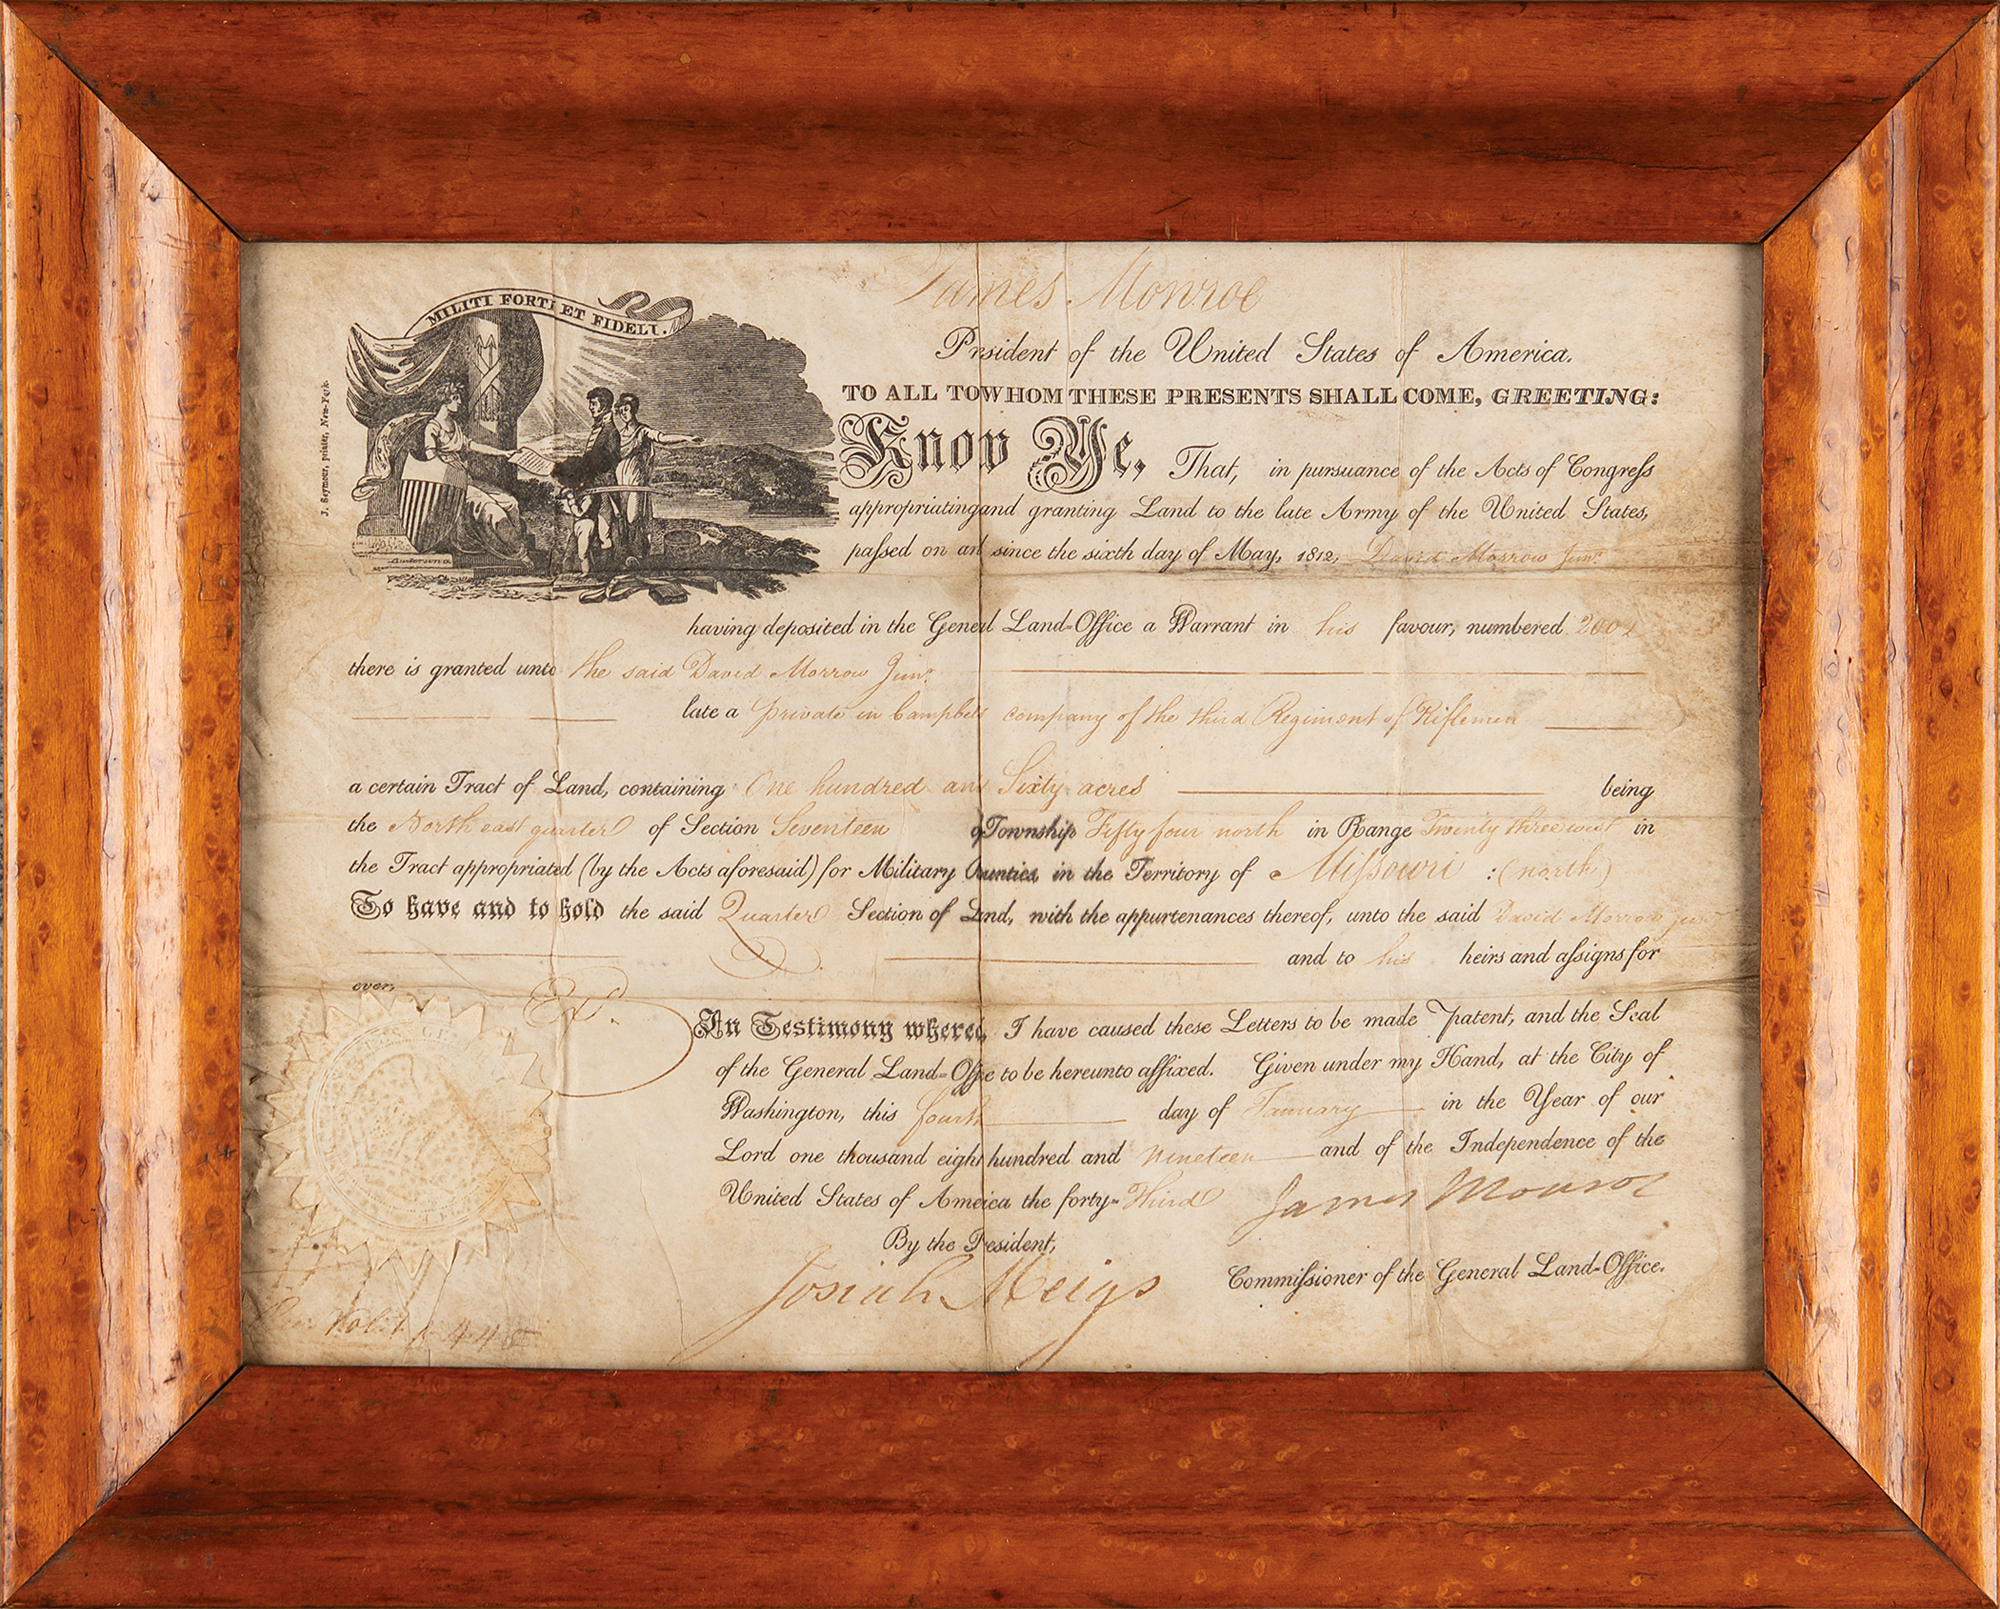 MILITI FORTI ET FIDELI.
J. Seymour, printer, New-York.
Anderson
James Monroe
President of the United States of America.
TO ALL TO WHOM THESE PRESENTS SHALL COME, GREETING:
Know Ye, That, in pursuance of the Acts of Congress
appropriating and granting Land to the late Army of the United States,
passed on and since the sixth day of May, 1812, David Morrow Junr.
having deposited in the General Land-Office a Warrant in his favour, numbered
there is granted unto the said David Morrow Junr.
late a private in Campbels company of the third Regiment of Riflemen
a certain Tract of Land, containing One hundred and Sixty acres being
the North east quarter of Section Seventeen of Township Fifty four north in Range Twenty three west in
the Tract appropriated (by the Acts aforesaid) for Military Bounties, in the Territory of Missouri : (north)
To have and to hold the said Quarter Section of Land, with the appurtenances thereof, unto the said David Morrow junr
and to his heirs and assigns for
ever,
In Testimony whereof, I have caused these Letters to be made Patent, and the Seal
of the General Land-Office to be hereunto affixed. Given under my Hand, at the City of
Washington, this fourth day of January in the Year of our
Lord one thousand eight hundred and nineteen and of the Independence of the
United States of America the forty-Third
James Monroe
By the President,
Josiah Meigs Commissioner of the General Land-Office.